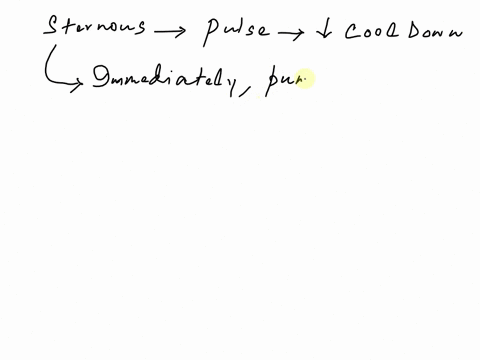 Sternous → Pulse → ↓ Cool Down
↳ Immediately, pur